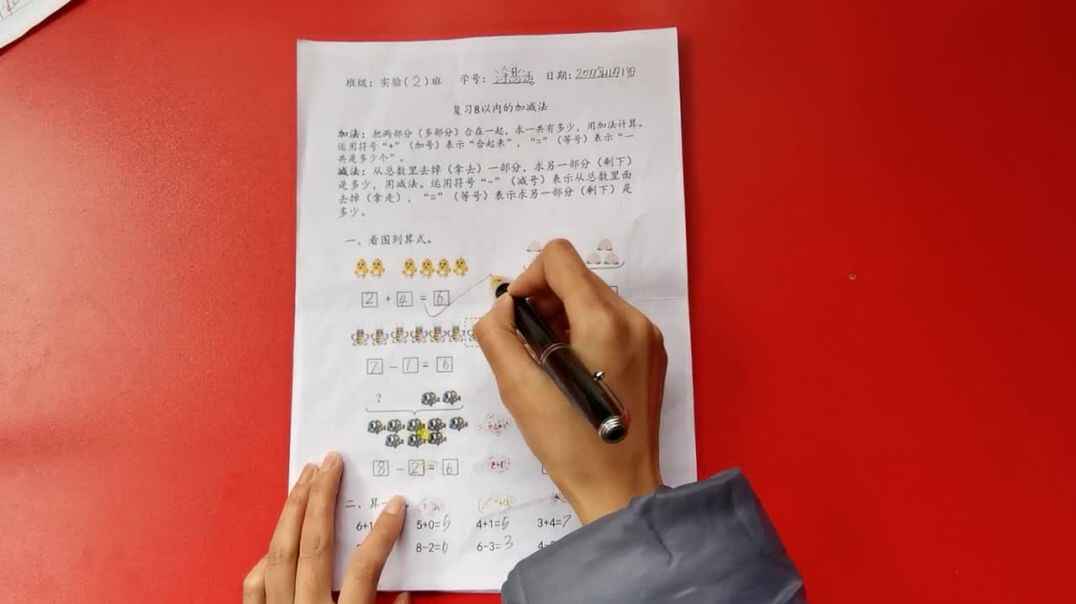 班级：实验(2)班 学号： 日期：
复习8以内的加减法
加法：把两部分（多部分）合在一起，求一共有多少，用加法计算。
运用符号“+”（加号）表示“合起来”，“=”（等号）表示“一
共是多少个”。
减法：从总数里去掉（拿去）一部分，求另一部分（剩下）
是多少，用减法。运用符号“-”（减号）表示从总数里面
去掉（拿走），“=”（等号）表示求另一部分（剩下）是
多少。
一、看图列算式。
2 + 4 = 6
- 1 = 6
?
8 - 2 = 6
二、算一
6+1 5+0=5 4+1=5 3+4=7
8-2=6 6-3=3 4-